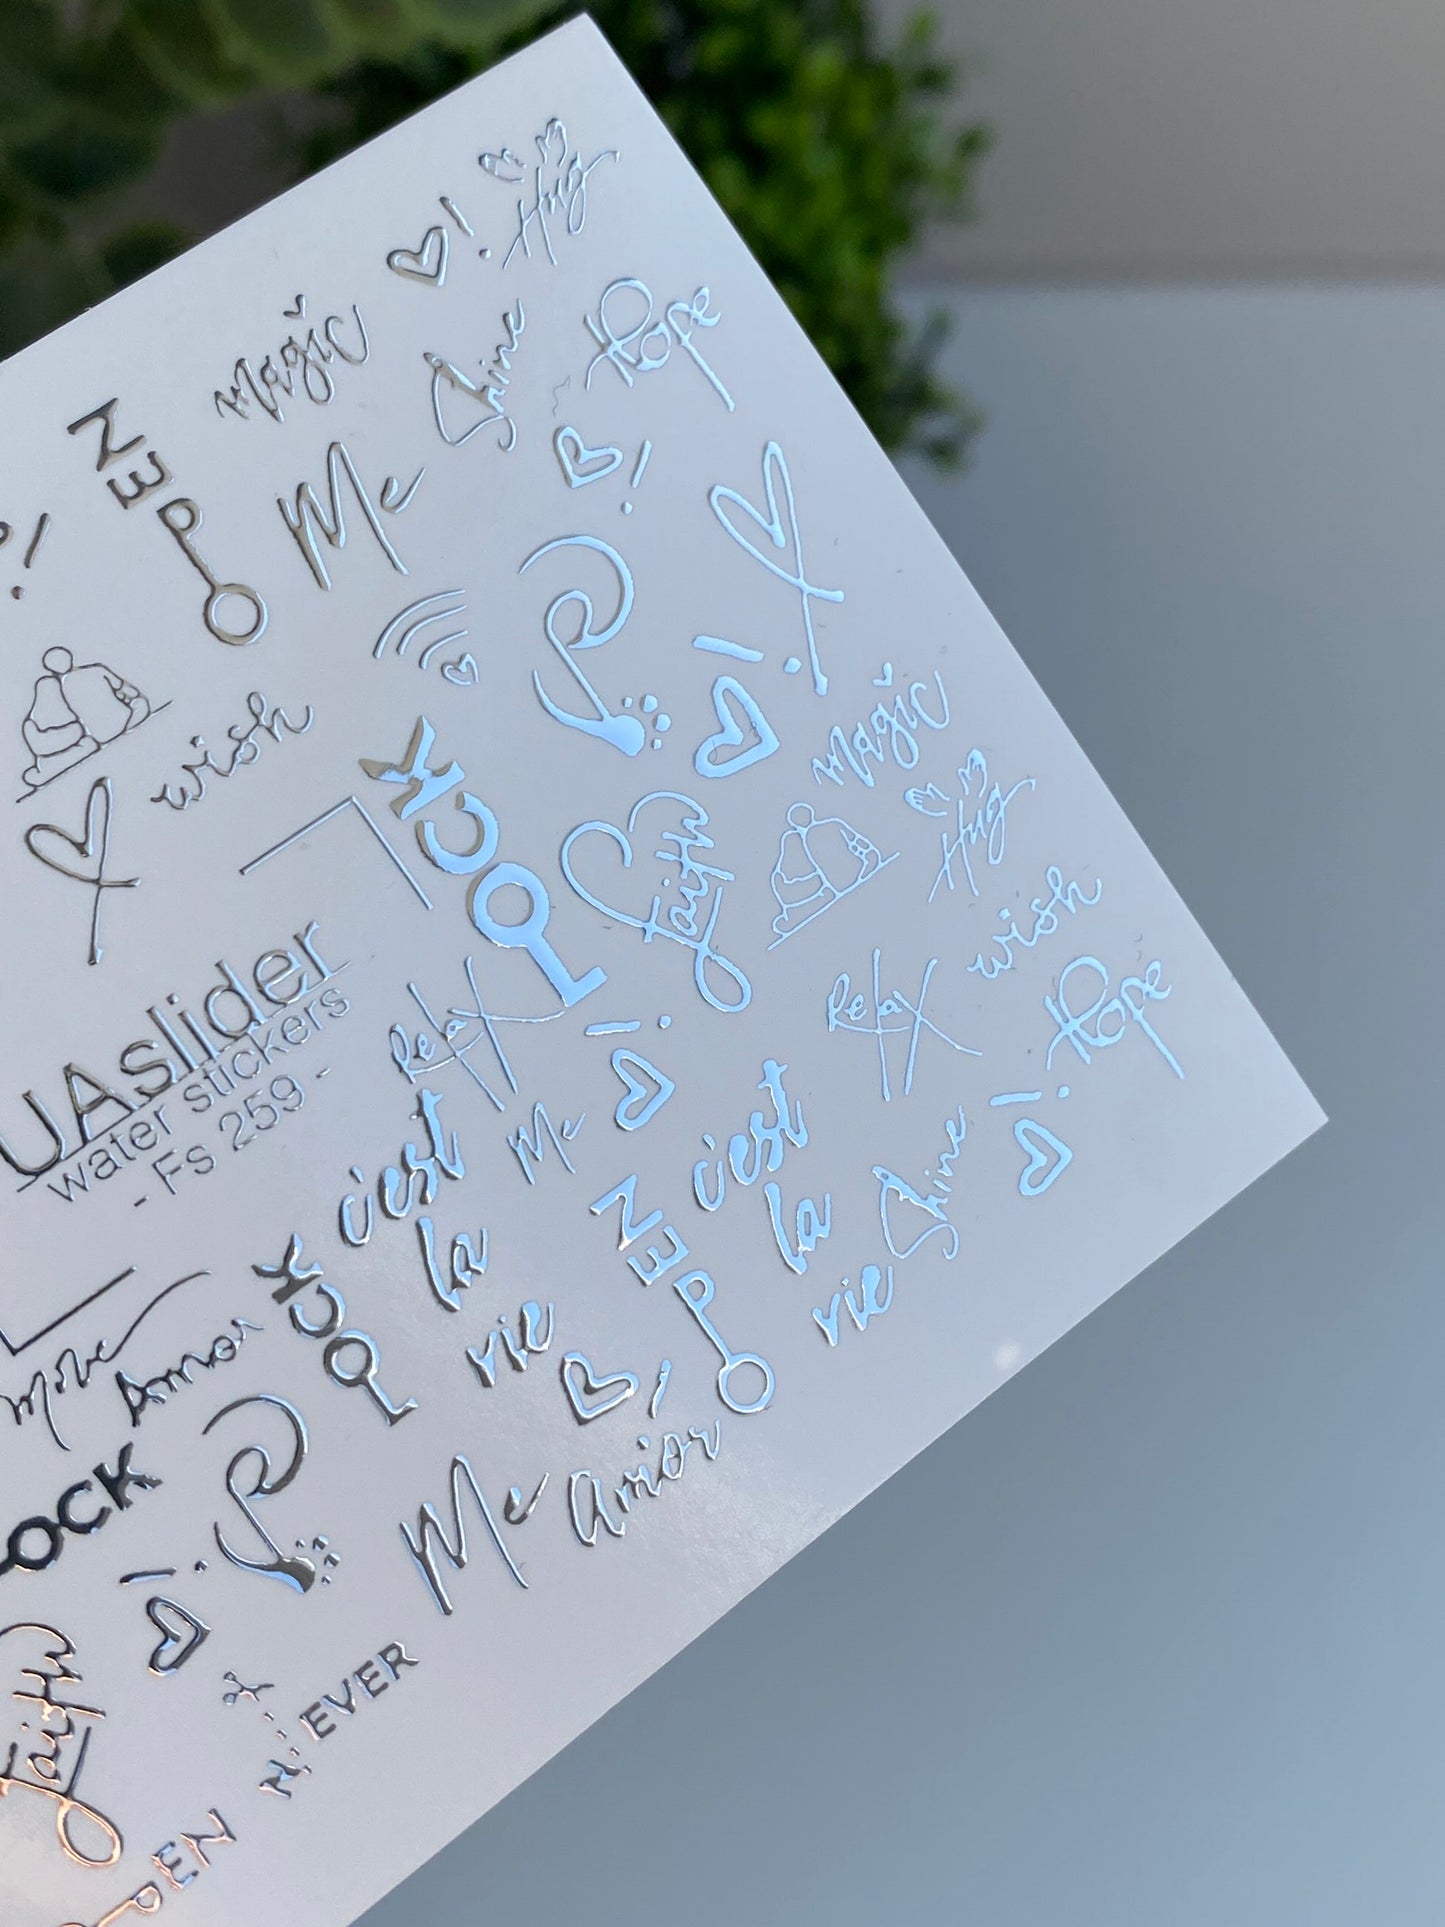 Hug
magic
Shine
Hope
OPEN
Me
wish
magic
LOCK
Faith
Hug
wish
UAslider
water stickers
- Fs 259 -
Relax
Relax
Hope
Me
c'est
la
vie
c'est
la
vie
Shine
OPEN
LOCK
Move
Amor
Me
Amor
LOCK
Faith
N
EVER
OPEN